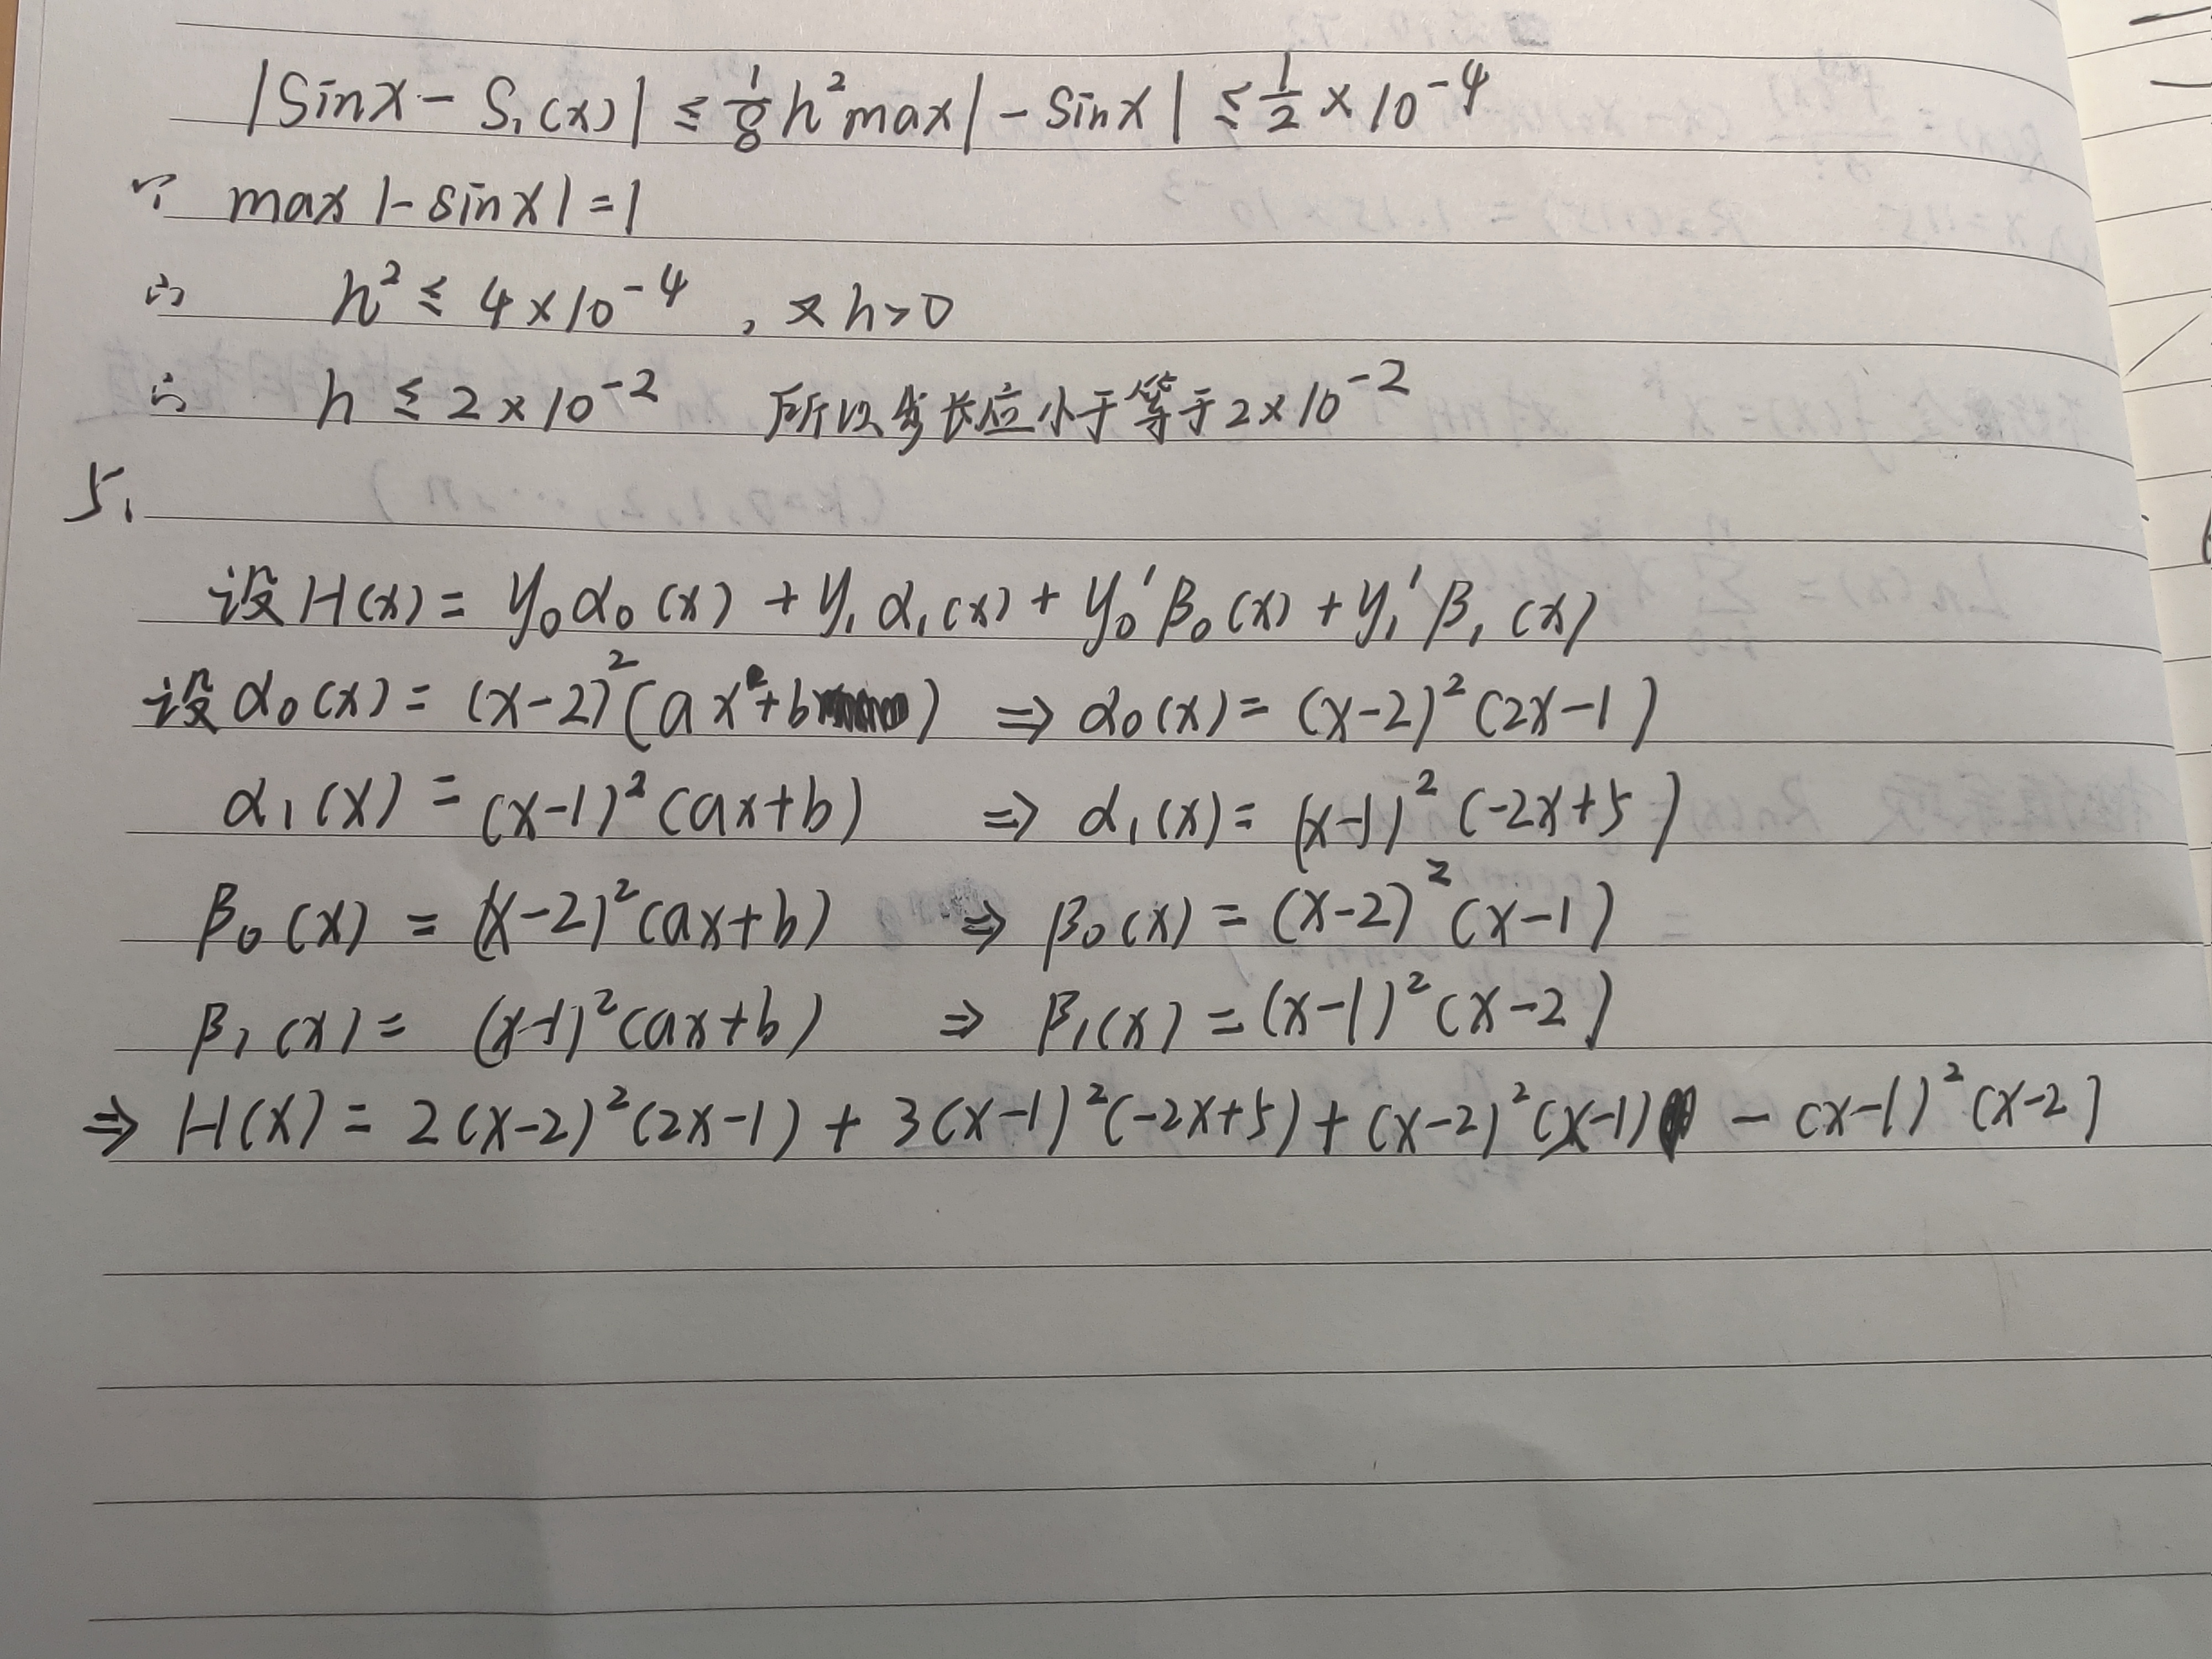 |sinx - S₁(x)| ≤ 1/8 h² max|-sinx| ≤ 1/2 × 10⁻⁴
∵ max |-sinx| = 1
∴ h² ≤ 4×10⁻⁴ , 又 h>0
∴ h ≤ 2×10⁻² 所以步长应小于等于2×10⁻²
5.
设H(x) = y₀α₀(x) + y₁α₁(x) + y₀'β₀(x) + y₁'β₁(x)
设α₀(x) = (x-2)²(ax+b) ⇒ α₀(x) = (x-2)²(2x-1)
α₁(x) = (x-1)²(ax+b) ⇒ α₁(x) = (x-1)²(-2x+5)
β₀(x) = (x-2)²(ax+b) ⇒ β₀(x) = (x-2)²(x-1)
β₁(x) = (x-1)²(ax+b) ⇒ β₁(x) = (x-1)²(x-2)
⇒ H(x) = 2(x-2)²(2x-1) + 3(x-1)²(-2x+5) + (x-2)²(x-1) - (x-1)²(x-2)